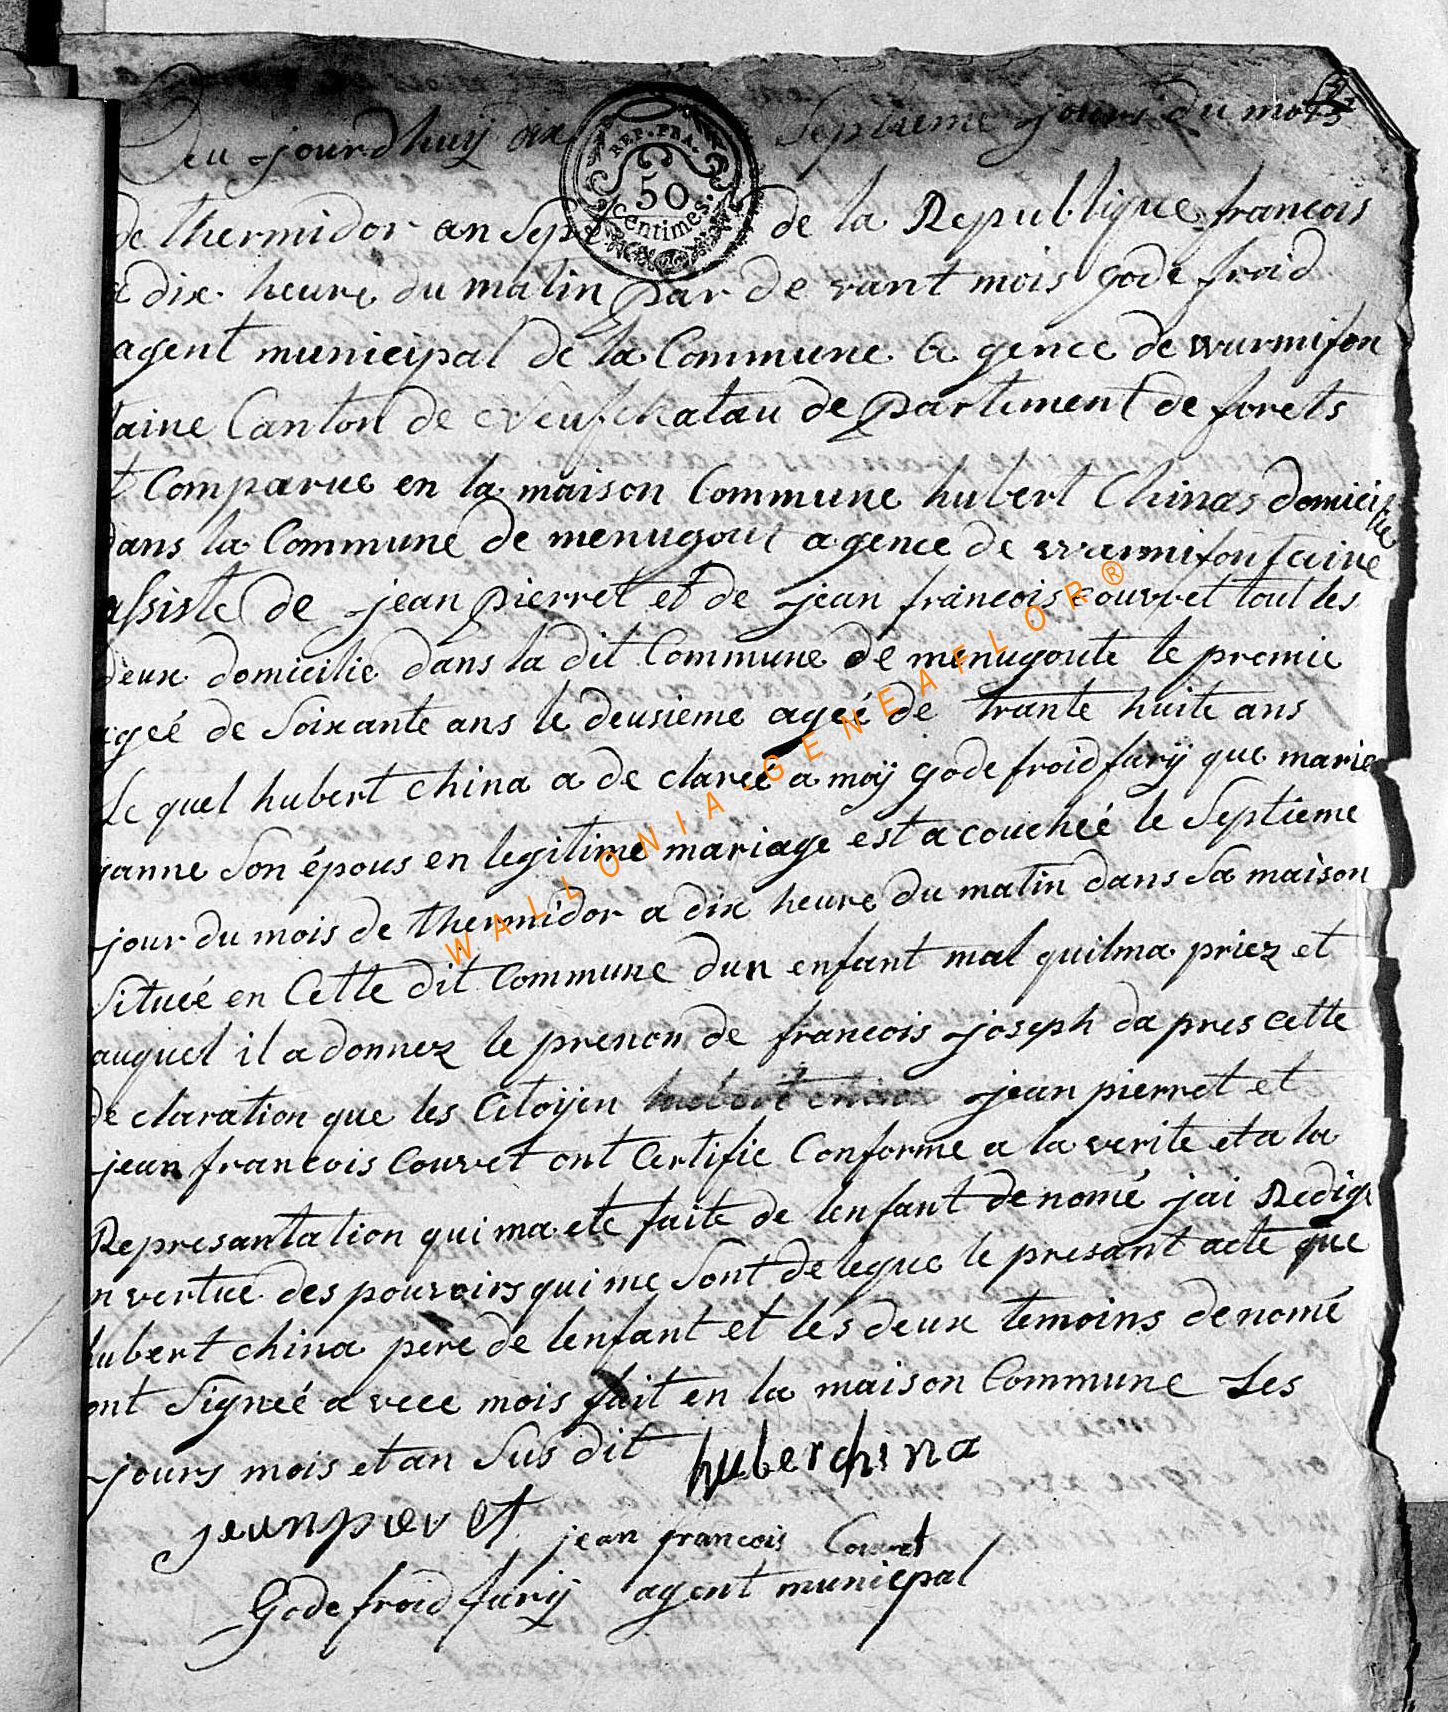 Ceu jourdhuÿ dix Septieme jours du mois
REP. FRA.
50
centimes.
de thermidor an Sept de la Republique francois
a dix heure du matin par de vant mois gode froid
agent municipal de la Commune a gence de wurmifon
taine Canton de Neufchatau de partement de forets
t Comparue en la maison Commune hubert Chinas domicilie
dans la Commune de menugout agence de warmifontaine
assiste de jean pierret et de jean francois couvret tout les
deux domicilie dans la dit Commune de menugoute le premie
ageé de Soixante ans le deusieme ageé de trante huite ans
Le quel hubert china a de clareé a moÿ gode froid furÿ que marie
janne Son épous en legitime mariage est a coucheé le Septieme
jour du mois de thermidor a dix heure du matin dans Sa maison
Situeé en Cette dit Commune dun enfant mal quilma priez et
auquel il a donnez le prenon de francois joseph da pres cette
de claration que les Citoÿen jean pierret et
jean francois Couvet ont Certifie Conforme a la verite et a la
Represantation qui ma ete faite de lenfant de nomé jai Redige
n vertue des pouvoirs qui me Sont de legue le presant acte que
hubert china pere de lenfant et les deux temoins de nomé
ont Signeé a vece mois fait en la maison Commune Les
jours mois et an Sus dit huberchina
jeanpieret jean francois Couvet
Gode froid furÿ agent municipal
WALLONIA-GENEAFLOR®